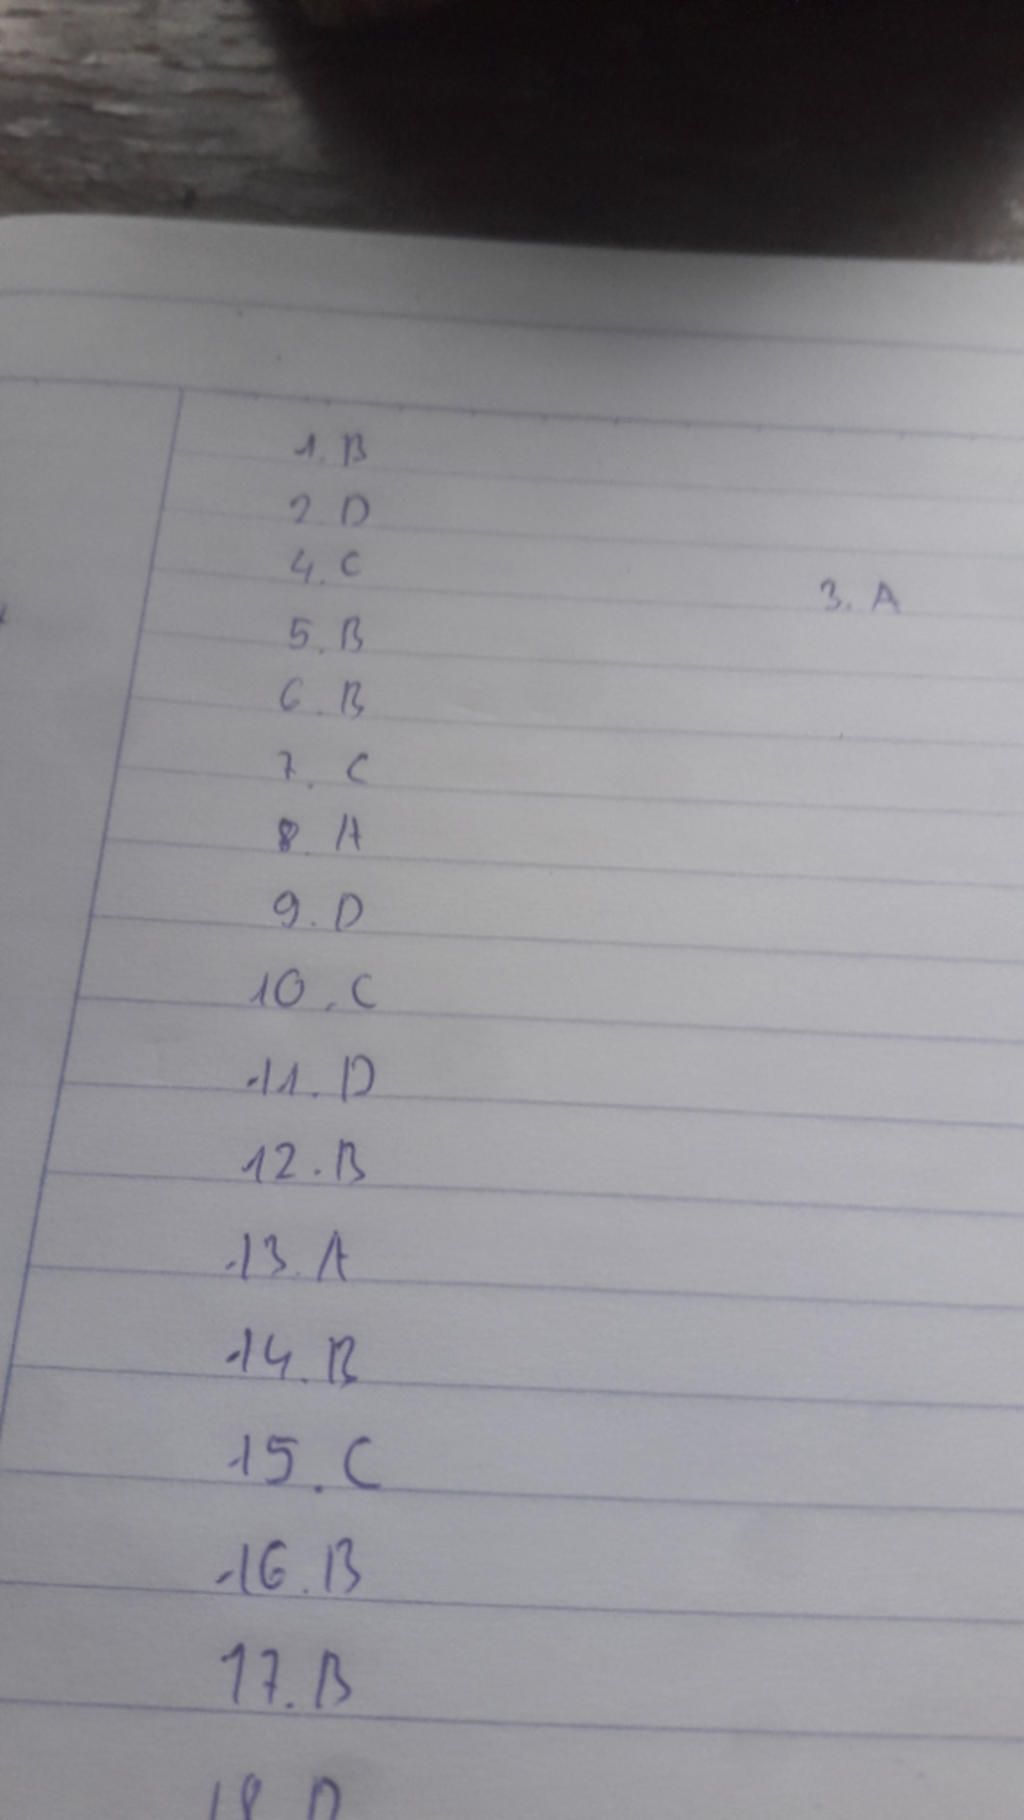 1. B
2. D
4. C
3. A
5. B
6. B
7. C
8. A
9. D
10. C
11. D
12. B
13. A
14. B
15. C
16. B
17. B